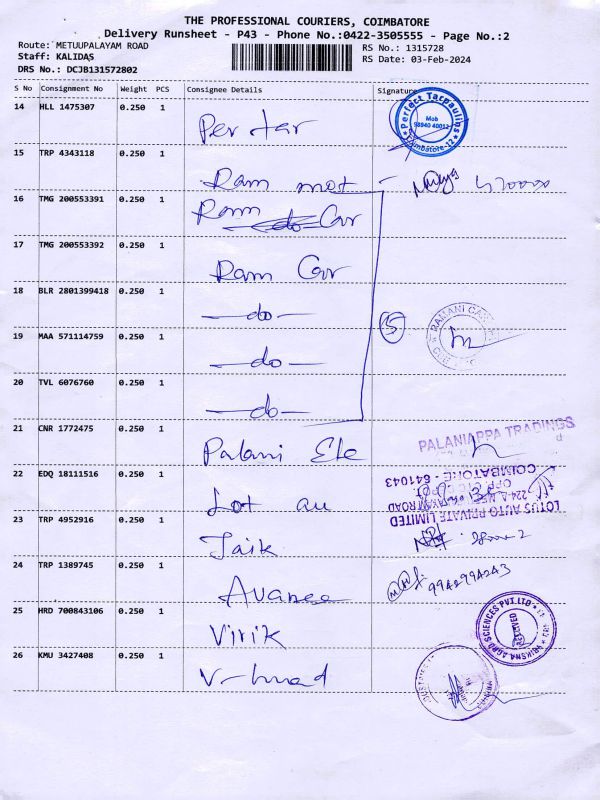 THE PROFESSIONAL COURIERS, COIMBATORE
Delivery Runsheet - P43 - Phone No.:0422-3505555 - Page No.:2
Route: METUUPALAYAM ROAD
RS No.: 1315728
Staff: KALIDAS
RS Date: 03-Feb-2024
DRS No.: DCJB131572802
S No Consignment No Weight PCS Consignee Details Signature
14 HLL 1475307 0.250 1 Per tar
Perfect Tarpaulin
Mob
98940 40012
Coimbatore-12
15 TRP 4343118 0.250 1 Ram mot
16 TMG 200553391 0.250 1 Ram Car
17 TMG 200553392 0.250 1 Ram Car
18 BLR 2801399418 0.250 1 -do-
5
RAMANI
19 MAA 571114759 0.250 1 -do-
20 TVL 6076760 0.250 1 -do-
21 CNR 1772475 0.250 1 Palani Ele
PALANIAPPA TRADINGS
22 EDQ 18111516 0.250 1 Lot au
LOTUS AUTO PRIVATE LIMITED
COIMBATORE - 641043
23 TRP 4952916 0.250 1 Jaik
24 TRP 1389745 0.250 1 Avanee
9942994243
25 HRD 700843106 0.250 1 Virik
VRIKSHA AGRO SCIENCES PVT.LTD
RECEIVED
26 KMU 3427408 0.250 1